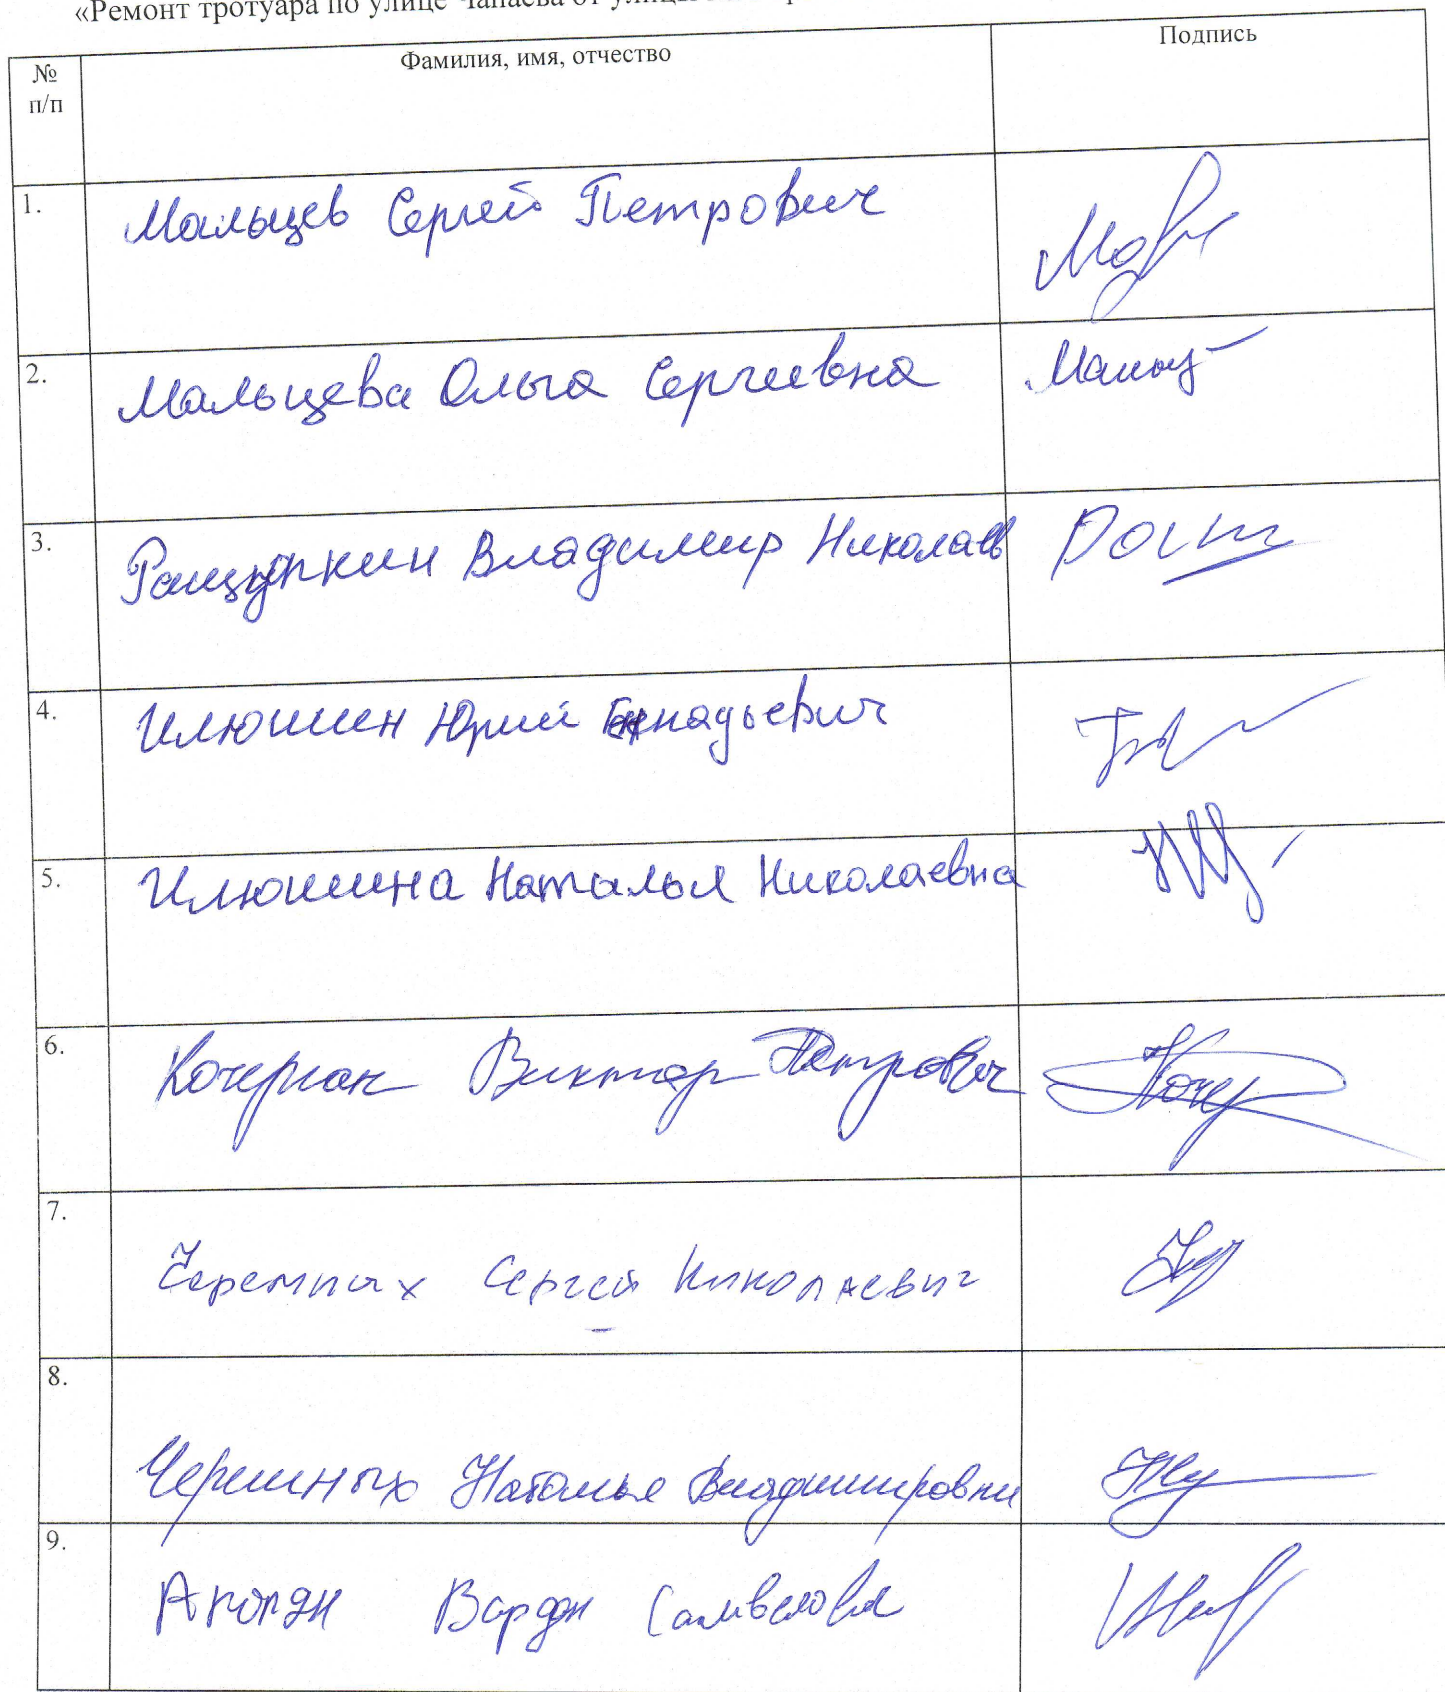 «Ремонт тротуара по улице Чапаева от улицы
№ п/п Фамилия, имя, отчество Подпись
1. Мальцев Сергей Петрович
2. Мальцева Ольга Сергеевна Мальц
3. Ращупкин Владимир Николаев
4. Илюшин Юрий Геннадьевич
5. Илюшина Наталья Николаевна
6. Кочерган Виктор Петрович Кочер
7. Черемных Сергей Николаевич
8. Черемных Наталья Владимировна
9. Акопян Вардан